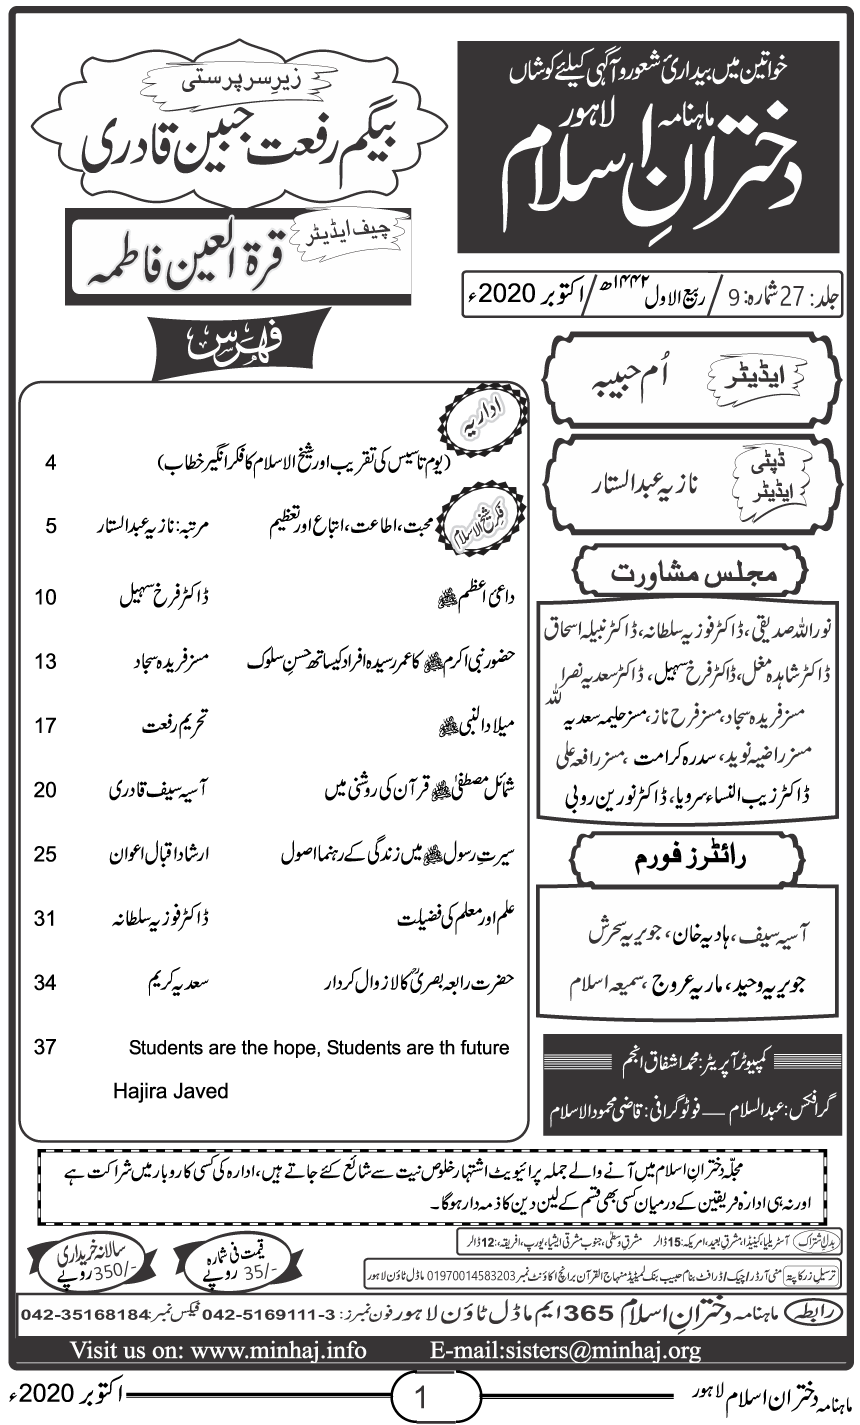 خواتین میں بیداریٔ شعور و آگہی کیلئے کوشاں
ماہنامہ لاہور
دخترانِ اسلام
زیرِ سرپرستی
بیگم رفعت جبین قادری
چیف ایڈیٹر
قرۃ العین فاطمہ
جلد: 27 شمارہ: 9 / ربیع الاول ۱۴۴۲ھ / اکتوبر 2020ء
ایڈیٹر
اُم حبیبہ
ڈپٹی ایڈیٹر
نازیہ عبدالستار
مجلس مشاورت
نوراللہ صدیقی، ڈاکٹر فوزیہ سلطانہ، ڈاکٹر نبیلہ اسحاق
ڈاکٹر شاہدہ مغل، ڈاکٹر فرخ سہیل، ڈاکٹر سعدیہ نصراللہ
مسز فریدہ سجاد، مسز فرح ناز، مسز حلیمہ سعدیہ
مسز راضیہ نوید، سدرہ کرامت، مسز رافعہ علی
ڈاکٹر زیب النساء سرویا، ڈاکٹر نورین روبی
رائٹرز فورم
آسیہ سیف، ہادیہ خان، جویریہ سحرش
جویریہ وحید، ماریہ عروج، سمیعہ اسلام
کمپیوٹر آپریٹر: محمد اشفاق انجم
گرافکس: عبدالسلام — فوٹوگرافی: قاضی محمود الاسلام
فہرس
اداریہ
(یوم تاسیس کی تقریب اور شیخ الاسلام کا فکر انگیز خطاب) 4
فکر شیخ الاسلام
محبت، اطاعت، اتباع اور تعظیم مرتبہ: نازیہ عبدالستار 5
داعیٔ اعظم ﷺ ڈاکٹر فرخ سہیل 10
حضور نبی اکرم ﷺ کا عمر رسیدہ افراد کیساتھ حسنِ سلوک مسز فریدہ سجاد 13
میلاد النبی ﷺ تحریم رفعت 17
شمائل مصطفیٰ ﷺ قرآن کی روشنی میں آسیہ سیف قادری 20
سیرتِ رسول ﷺ میں زندگی کے رہنما اصول ارشاد اقبال اعوان 25
علم اور معلم کی فضیلت ڈاکٹر فوزیہ سلطانہ 31
حضرت رابعہ بصریؒ کا لازوال کردار سعدیہ کریم 34
37 Students are the hope, Students are th future
Hajira Javed
مجلّہ دخترانِ اسلام میں آنے والے جملہ پرائیویٹ اشتہار خلوص نیت سے شائع کئے جاتے ہیں، ادارہ کی کسی کاروبار میں شراکت ہے
اور نہ ہی ادارہ فریقین کے درمیان کسی بھی قسم کے لین دین کا ذمہ دار ہوگا۔
بدلِ اشتراک آسٹریلیا، کینیڈا، مشرق بعید، امریکہ: 15 ڈالر مشرق وسطیٰ، جنوب مشرقی ایشیا، یورپ، افریقہ: 12 ڈالر
ترسیل زر کا پتہ منی آرڈر/چیک/ڈرافٹ بنام حبیب بنک لمیٹیڈ منہاج القرآن برانچ اکاؤنٹ نمبر 01970014583203 ماڈل ٹاؤن لاہور
قیمت فی شمارہ
35/- روپے
سالانہ خریداری
350/- روپے
رابطہ ماہنامہ دخترانِ اسلام 365 ایم ماڈل ٹاؤن لاہور فون نمبرز: 042-5169111-3 فیکس نمبر: 042-35168184
Visit us on: www.minhaj.info E-mail:sisters@minhaj.org
ماہنامہ دختران اسلام لاہور 1 اکتوبر 2020ء